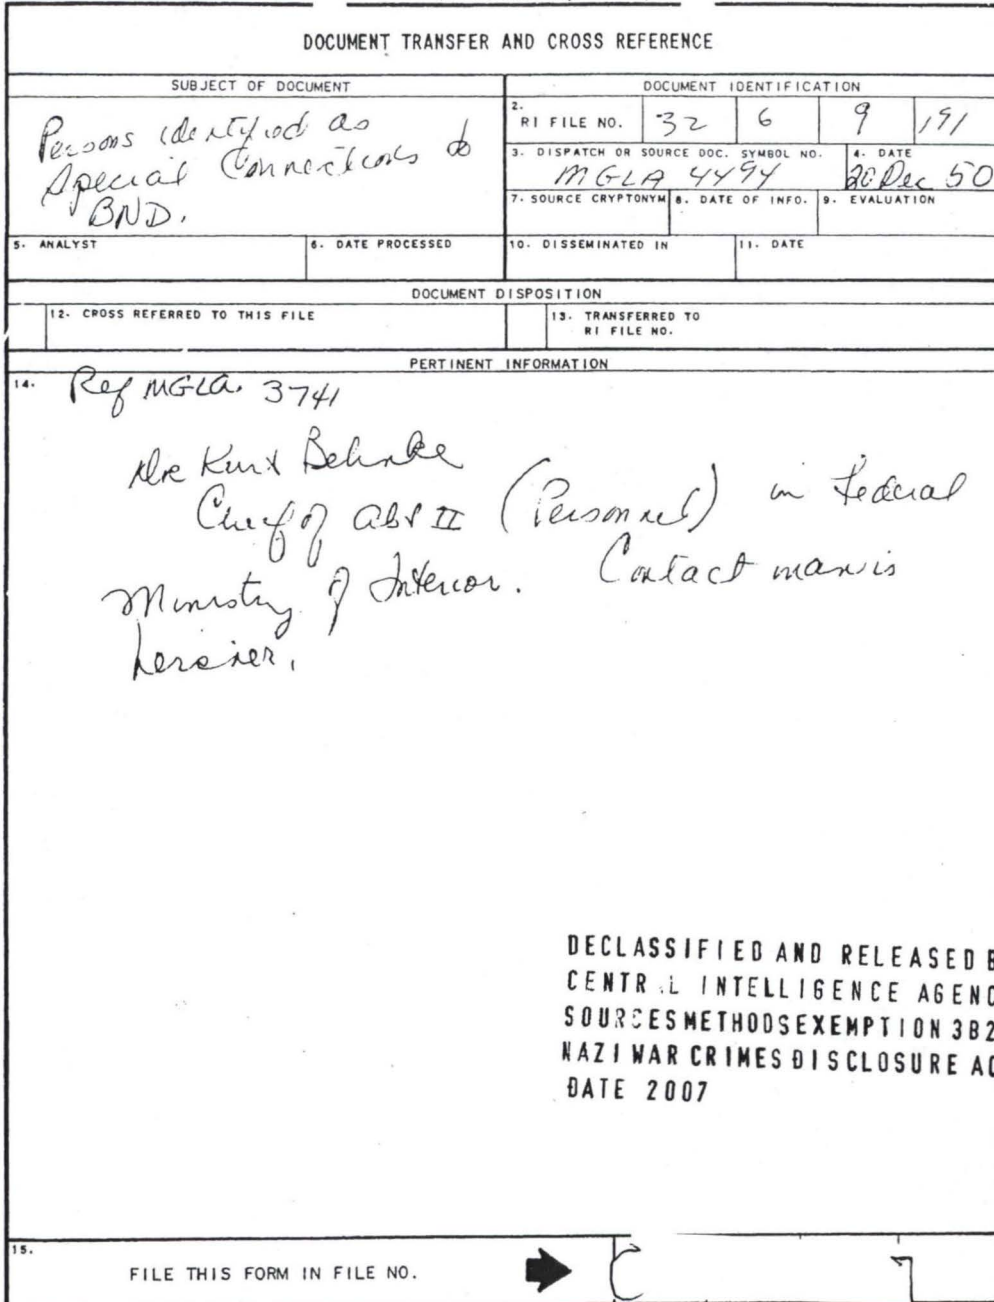 DOCUMENT TRANSFER AND CROSS REFERENCE
SUBJECT OF DOCUMENT
Persons identified as
Special Connections to
BND.
DOCUMENT IDENTIFICATION
2. RI FILE NO. 32 6 9 191
3. DISPATCH OR SOURCE DOC. SYMBOL NO. MGLA 4494
4. DATE 20 Dec 50
7. SOURCE CRYPTONYM 8. DATE OF INFO. 9. EVALUATION
5. ANALYST 6. DATE PROCESSED 10. DISSEMINATED IN 11. DATE
DOCUMENT DISPOSITION
12. CROSS REFERRED TO THIS FILE
13. TRANSFERRED TO
RI FILE NO.
PERTINENT INFORMATION
14. Ref MGLA. 3741
Kurt Behnke
Chief of Abt II (Personnel) in Federal
Ministry of Interior. Contact man is
DECLASSIFIED AND RELEASED B
CENTR L INTELLIGENCE AGENC
SOURCESMETHODSEXEMPTION 3B2
NAZI WAR CRIMES DISCLOSURE AC
DATE 2007
15.
FILE THIS FORM IN FILE NO.